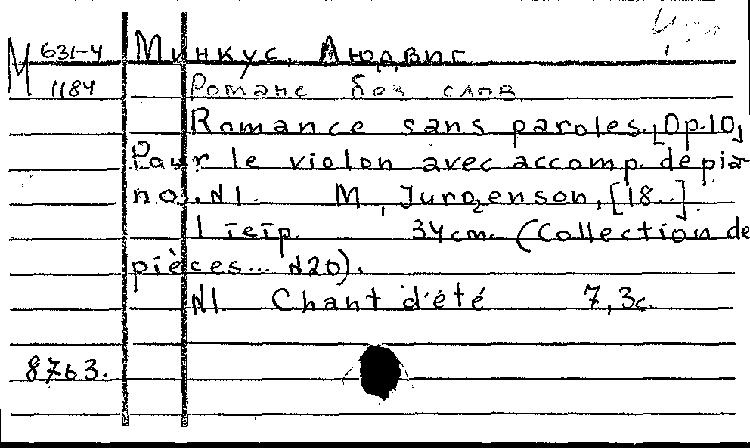 М 631-4 Минкус, Людвиг
1184 Романс без слов
Romance sans paroles. [Op.10]
Pour le violon avec accomp. de pia-
no. N1. M, Jurgenson, [18..]
34 cm. (Collection de
pièces... N20).
N1 Chant d'été 7, 3 с.
8763.